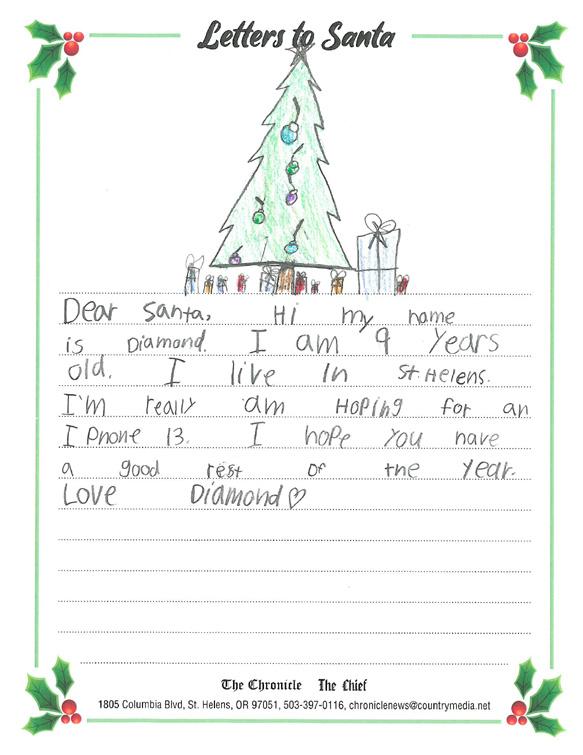 Letters to Santa
Dear Santa, Hi my name
is Diamond. I am 9 Years
old. I live in St. Helens.
I'm really am Hoping for an
I Phone 13. I hope you have
a good rest of the year.
Love Diamond♡
The Chronicle The Chief
1805 Columbia Blvd, St. Helens, OR 97051, 503-397-0116, chroniclenews@countrymedia.net